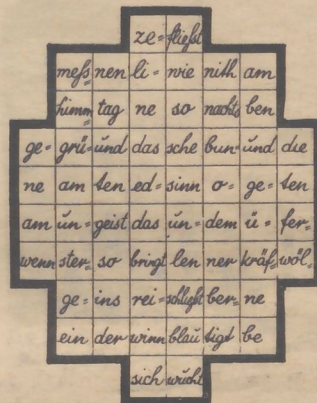 ze= fließt
meß= nen li= wie nith am
himm= tag ne so nachts ben
ge= grü= und das sche bun= und die
ne am ten ed= sinn o= ge= ten
am un= geist das un= dem ü= fer=
wenn ster= so bringt len ner kräf= wöl=
ge= ins rei= schließt ber= ne
ein der winn blau tigt be
sich wucht